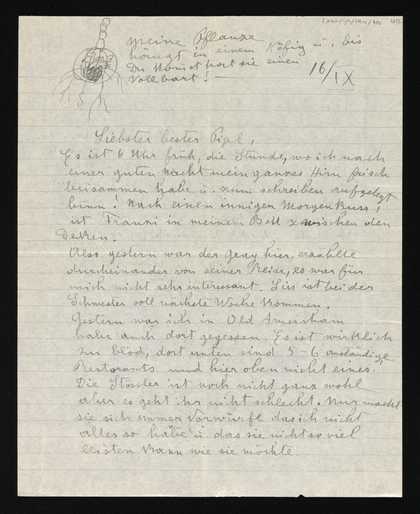 meine Pflanze
hängt in einem Käfig u. bis
Du kommst hat sie einen
Vollbart! —
16/IX
Liebster bester Pipl,
Es ist 6 Uhr früh, die Stunde, wo ich nach
einer guten Nacht mein ganzes Hirn frisch
beisammen habe u. zum schreiben aufgelegt
binn! Nach einen innigen Morgenkuss,
ist Franzi in meinem Bett zwischen den
Decken.
Also gestern war der Geay hier, erzählte
durcheinander von seiner Reise, es war für
mich nicht sehr interessant. Sie ist bei der
Schwester soll nächste Woche kommen.
Gestern war ich in Old Amersham
habe auch dort gegessen. Es ist wirklich
zu blöd, dort unten sind 5-6 anständige
Restorants und hier oben nicht eines.
Die Stössler ist noch nicht ganz wohl
aber es geht ihr nicht schlecht. Nur macht
sie sich immer Vorwürfe das ich nicht
alles so habe u das sie nicht so viel
leisten kann wie sie möchte